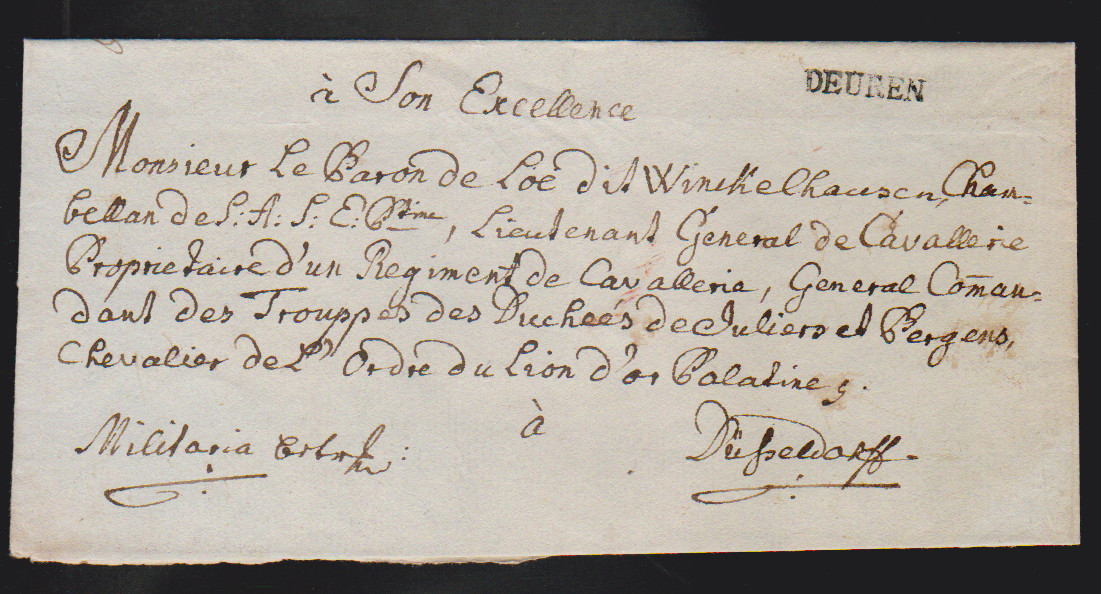 DEUREN
à Son Excellence
Monsieur Le Baron de Loë dit Winckelhausen, Cham-
bellan de S: A: S: E: Ptme, Lieutenant General de Cavallerie
Proprietaire d'un Regiment de Cavallerie, General Com̄an-
dant des Trouppes des Duchées de Juliers et Bergens,
Chevalier de L' Ordre du Lion d'or Palatine
à
Militaria Düsseldorff.